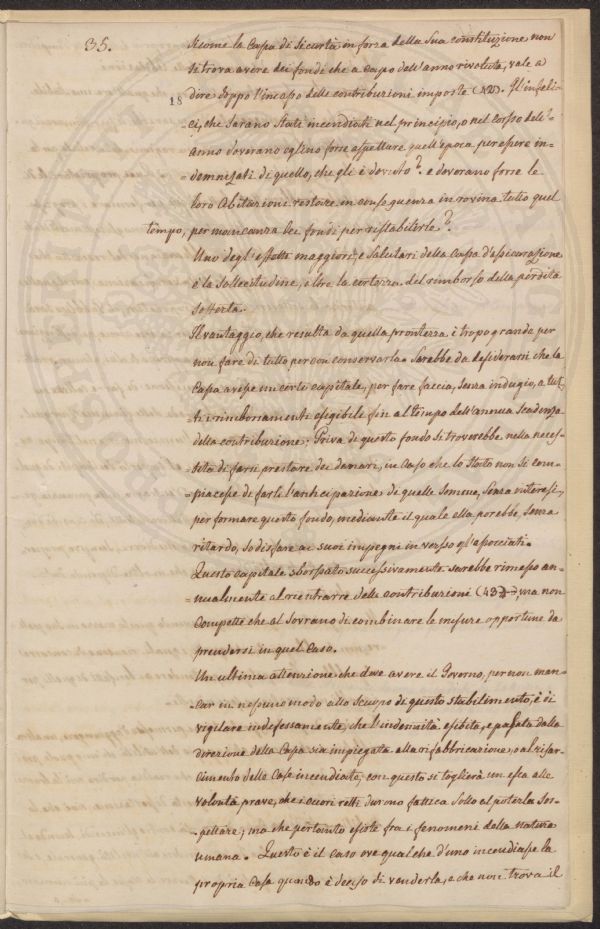 35.
Sicome la Cassa di Sicurtà in forza della Sua constituzione non
si trova avere dei fondi che a capo dell'anno rivoluto, vale a
18
dire doppo l'incasso delle contribuzioni imposte Gl'infeli=
=ci, che sarano Stati incendiati nel principio, o nel Corso dell'=
=anno doverano eglino forse aspettare quell'epoca per essere in=
=demnizati di quello, che gli è dovuto? e doverano forse le
loro Abitazioni restare in conseguenza in rovina tutto quel
tempo, per mancanza dei fondi per ristabilirle?
Uno degl'effetti maggiori, e Salutari della Cassa d'assicurazione
è la Sollecitudine, oltre la certezza del rimborso della perdita
Sofferta.
Il vantaggio, che resulta da quella prontezza è tropo grande per
non fare di tutto per con conservarla. Sarebbe da desiderarsi che la
Cassa avesse un certo capitale, per fare faccia, Senza indugio, a tut=
=ti i rimborsamenti esigibile fin al tempo dell'annua Scadenza
della contribuzione; Priva di questo fondo Si troverebbe nella neces=
=sità di farsi prestare dei denari, in Caso che lo Stato non Si com=
=piacesse di farli l'anticipazione di quelle Somme, Senza interessi,
per formare questo fondo, mediante il quale ella potrebbe, Senza
ritardo, Sodisfare ai suoi impegni in verso gl'associati.
Questo capitale sborsato successivamente sarebbe rimesso an=
=nualmente al rientrarre delle contribuzioni (43) ma non
Compette che al Sovrano di combinare le misure opportune da
prendersi in quel Caso.
Un ultima attenzione che deve avere il Governo, per non man=
car in nessuno modo allo Scuopo di questo stabilimento, è di
vigilare indefessamente, che l'indennità esibita, e passata dalla
direzione della Cassa sia impiegata alla rifabbricazione, o al risar=
cimento delle Case incendiate, con questo si toglierà un esca alle
Volontà prave, che i cuori retti durono fattica Solo al poterla Sos=
=pettare; ma che pertanto esiste fra i fenomeni della natura
umana. Questo è il Caso ove qualche d'uno incendiasse la
propria Casa quando è deciso di venderla, e che non trova il